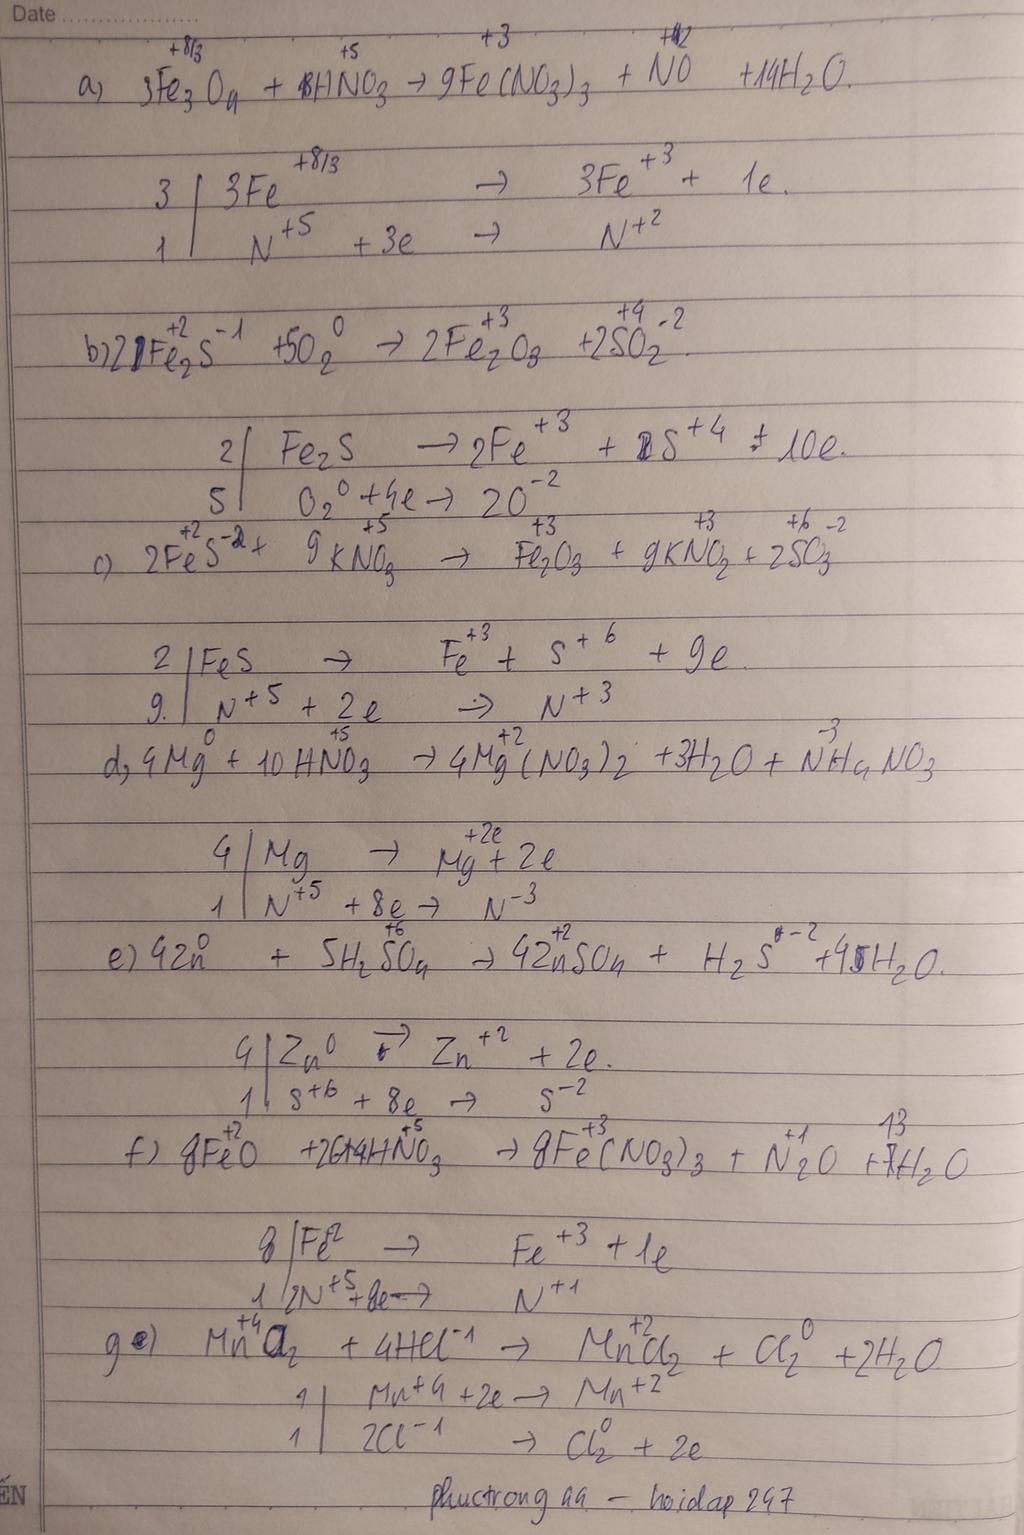 Date
a) 3Fe₃⁺⁸/³O₄ + 8HN⁺⁵O₃ → 9Fe⁺³(NO₃)₃ + N⁺²O + 14H₂O.
3 | 3Fe⁺⁸/³ → 3Fe⁺³ + 1e.
1 | N⁺⁵ + 3e → N⁺²
b) 2Fe₂⁺²S⁻¹ + 5O₂⁰ → 2Fe₂⁺³O₃ + 2S⁺⁴O₂⁻².
2 | Fe₂S → 2Fe⁺³ + S⁺⁴ + 10e.
5 | O₂⁰ + 4e → 2O⁻²
c) 2Fe⁺²S⁻² + 9KN⁺⁵O₃ → Fe₂⁺³O₃ + 9KN⁺³O₂ + 2S⁺⁶O₃⁻²
2 | FeS → Fe⁺³ + S⁺⁶ + 9e
9. | N⁺⁵ + 2e → N⁺³
d, 4Mg⁰ + 10HN⁺⁵O₃ → 4Mg⁺²(NO₃)₂ + 3H₂O + N⁻³H₄NO₃
4 | Mg → Mg⁺²ᵉ + 2e
1 | N⁺⁵ + 8e → N⁻³
e) 4Zn⁰ + 5H₂S⁺⁶O₄ → 4Zn⁺²SO₄ + H₂S⁻² + 4H₂O.
4 | Zn⁰ → Zn⁺² + 2e.
1 | S⁺⁶ + 8e → S⁻²
f) 8Fe⁺²O + 26HN⁺⁵O₃ → 8Fe⁺³(NO₃)₃ + N₂⁺¹O + 13H₂O
8 | Fe² → Fe⁺³ + 1e
1 | 2N⁺⁵ + 8e → N⁺¹
g) Mn⁺⁴O₂ + 4HCl⁻¹ → Mn⁺²Cl₂ + Cl₂⁰ + 2H₂O
1 | Mn⁺⁴ + 2e → Mn⁺²
1 | 2Cl⁻¹ → Cl₂⁰ + 2e
phuctrong 44 – hoidap 247
ẾN